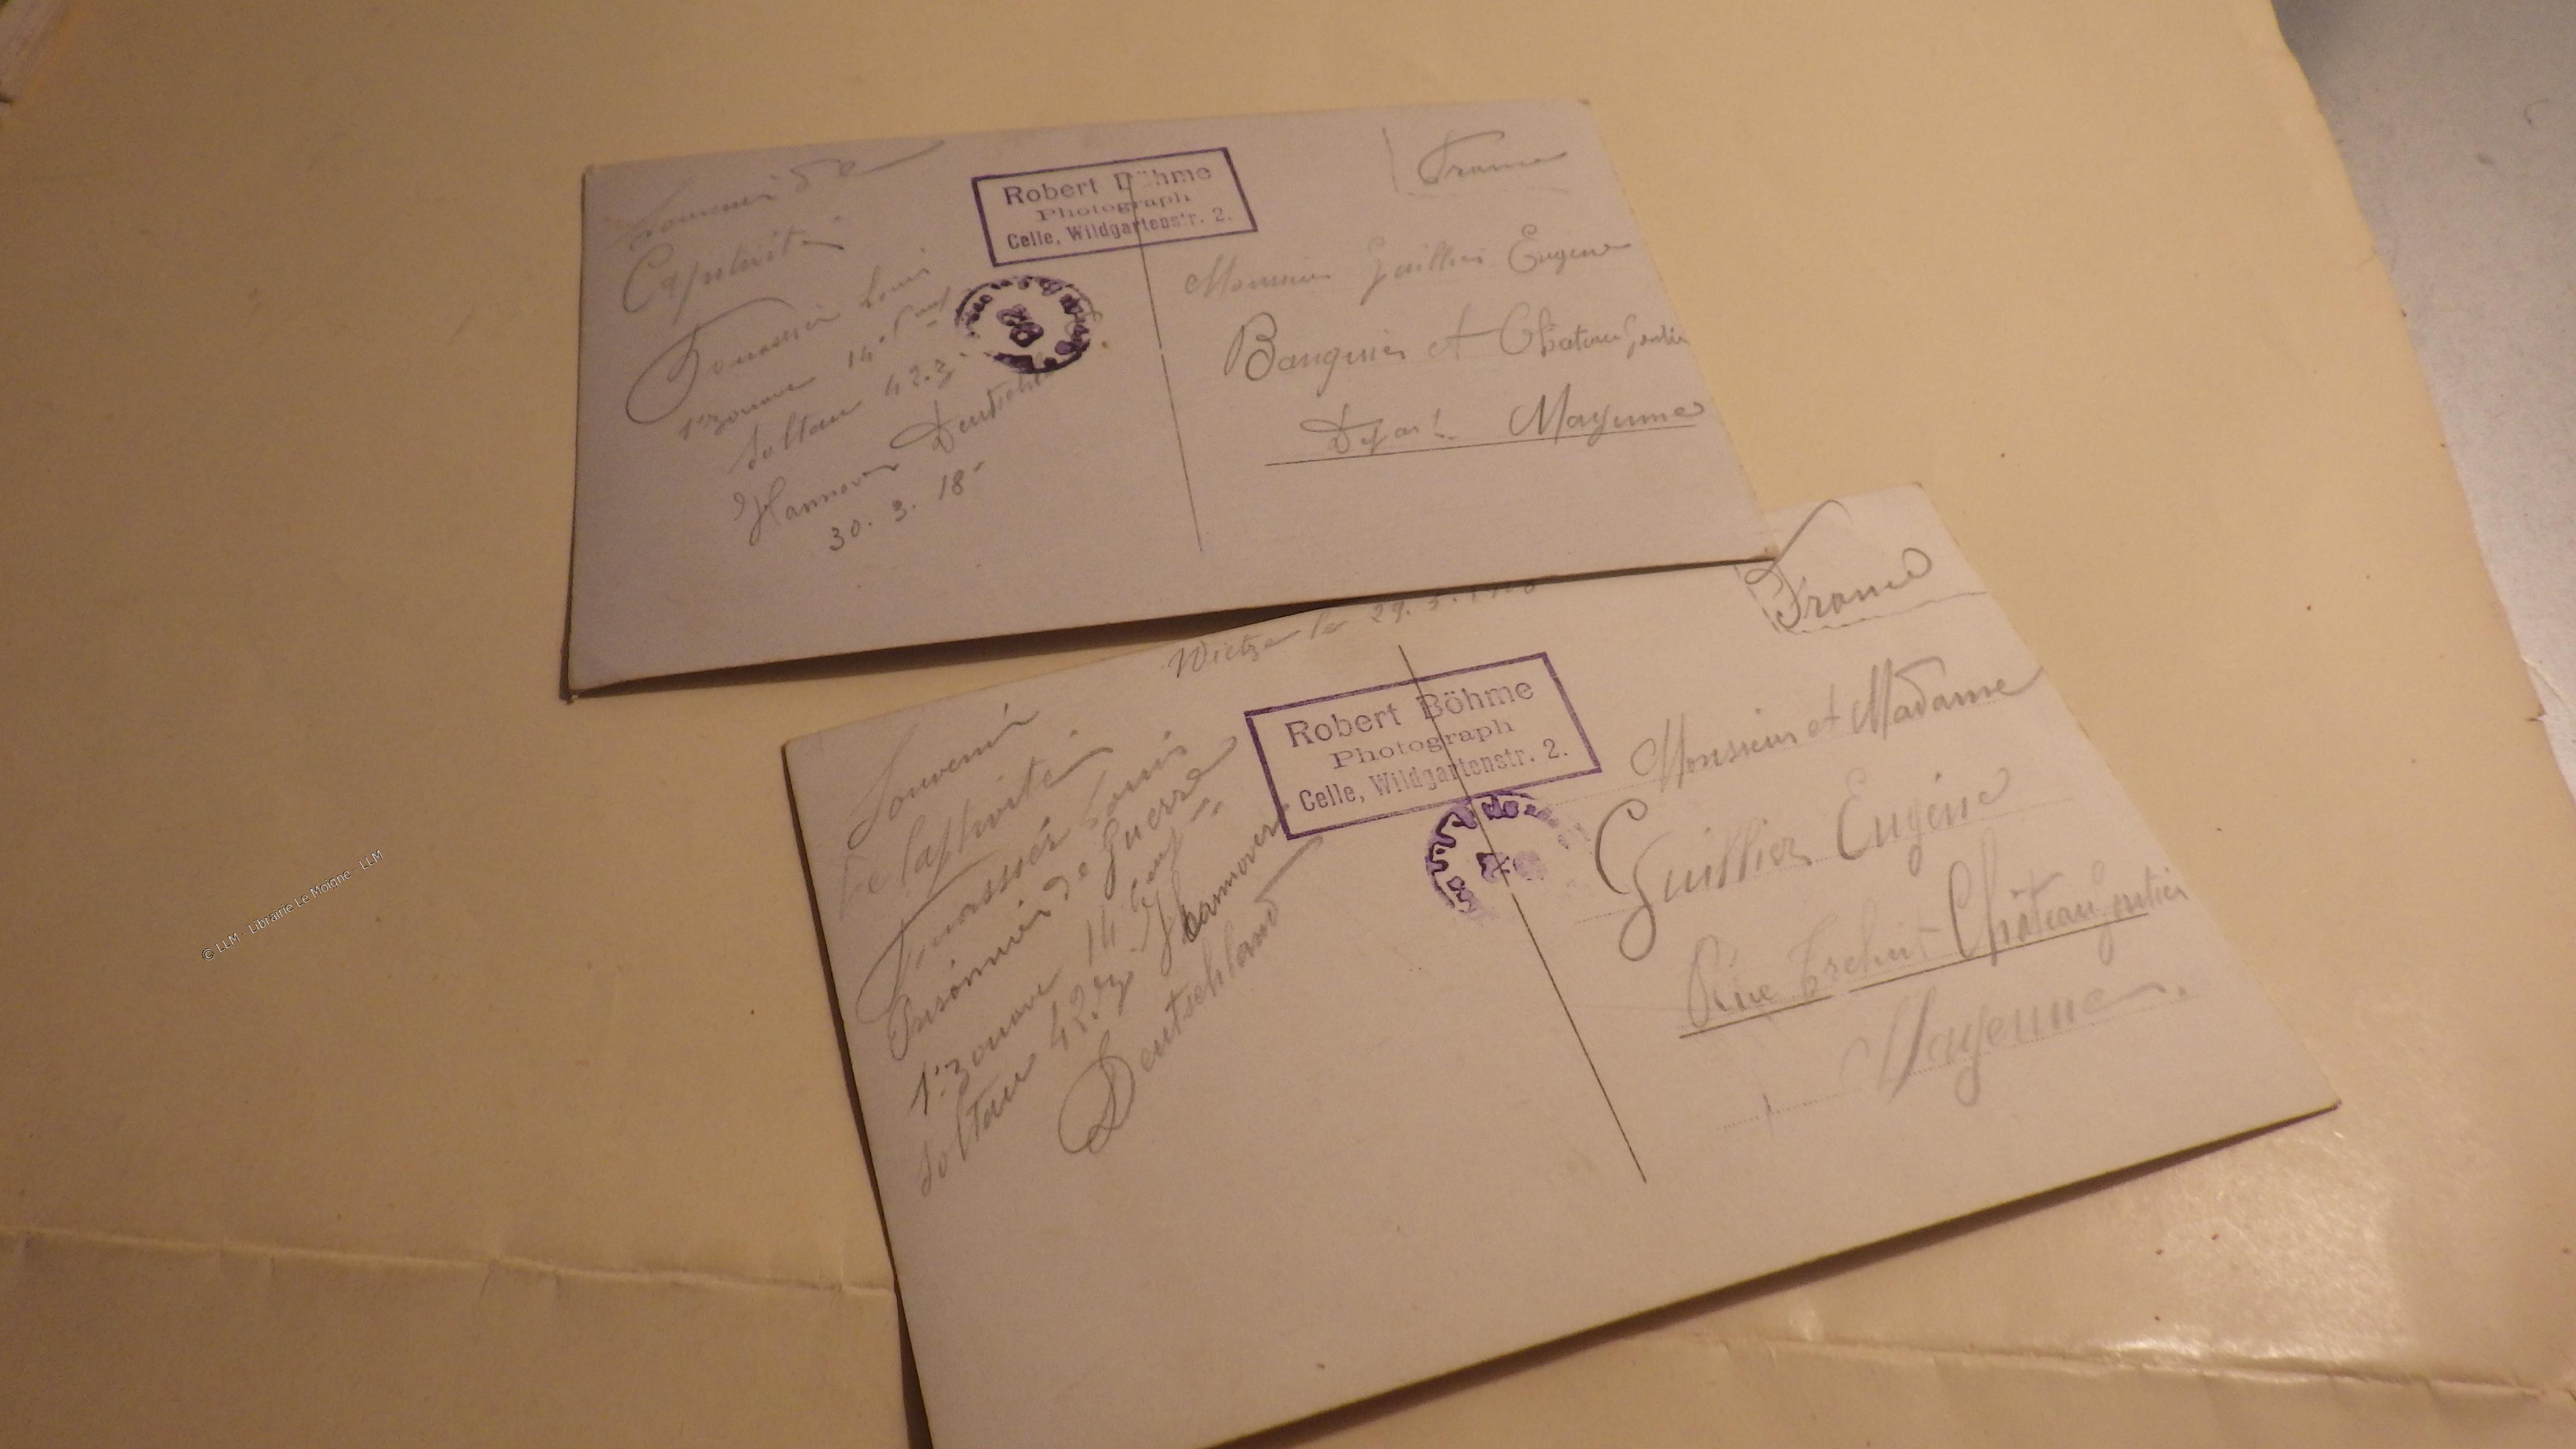 Souvenir de
Captivité
Louis
1er zouave 14e Comp
Soltau 42.3.
Hannover Deutschl
30. 3. 18-
Robert Böhme
Photograph
Celle, Wildgartenstr. 2.
France
Monsieur Guillier Eugène
Banquier et Chateau gontier
Départ. Mayenne
Wietze le 29. 3.
Souvenir
De Captivité
Louis
Prisonnier de Guerre
1er zouave 14e Comp
Soltau 42.3. Hannover
Deutschland
Robert Böhme
Photograph
Celle, Wildgartenstr. 2.
France
Monsieur et Madame
Guillier Eugène
Rue Château gontier
Mayenne
© LLM - Librairie Le Moigne - LLM